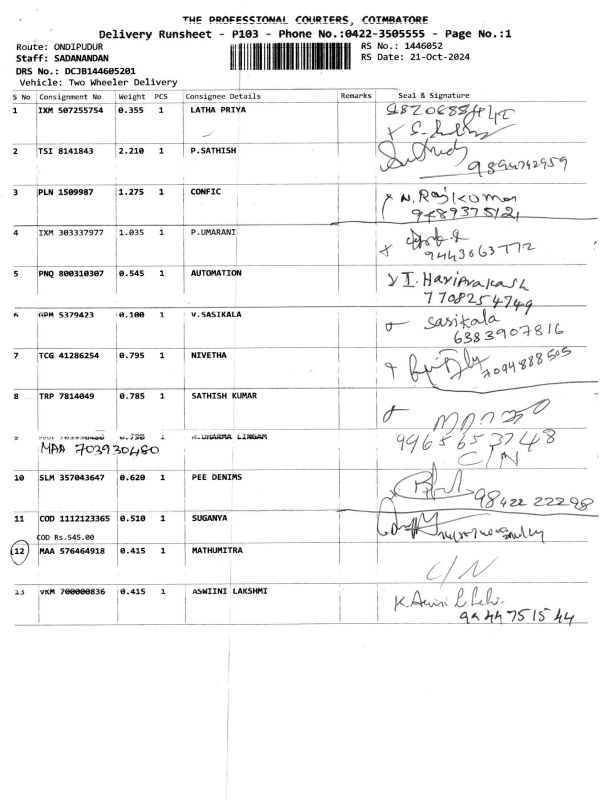 THE PROFESSIONAL COURIERS, COIMBATORE
Delivery Runsheet - P103 - Phone No.:0422-3505555 - Page No.:1
Route: ONDIPUDUR RS No.: 1446052
Staff: SADANANDAN RS Date: 21-Oct-2024
DRS No.: DCJB144605201
Vehicle: Two Wheeler Delivery
S No Consignment No Weight PCS Consignee Details Remarks Seal & Signature
1 IXM 507255754 0.355 1 LATHA PRIYA
2 TSI 8141843 2.210 1 P.SATHISH
9894742959
3 PLN 1509987 1.275 1 CONFIC N. Rajkumar
9489375121
4 IXM 303337977 1.035 1 P.UMARANI
9443063772
5 PNQ 800310307 0.545 1 AUTOMATION T. Hariprakash
7708254749
6 GPM 5379423 0.100 1 V.SASIKALA Sasikala
6383907816
7 TCG 41286254 0.795 1 NIVETHA
7094888505
8 TRP 7814049 0.785 1 SATHISH KUMAR
9965653748
9 MAA 703930480 0.738 1 M.DHARMA LINGAM
MAA 703930480 C/N
10 SLM 357043647 0.620 1 PEE DENIMS
98422 22298
11 COD 1112123365 0.510 1 SUGANYA
COD Rs.545.00
12 MAA 576464918 0.415 1 MATHUMITRA
C/N
13 VKM 700000836 0.415 1 ASWIINI LAKSHMI
9444751544